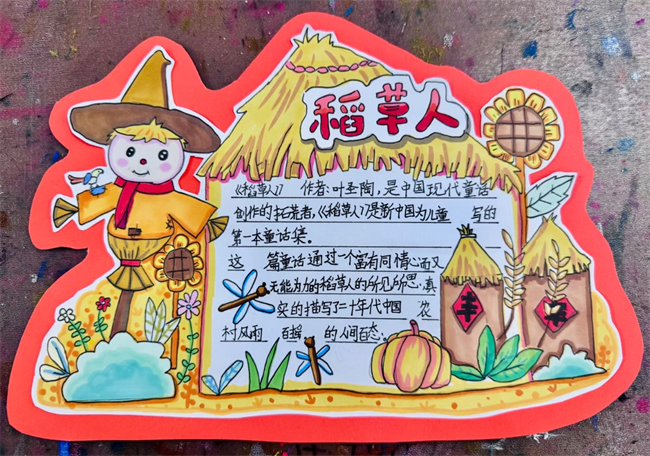 稻草人
《稻草人》 作者:叶圣陶,是中国现代童话
创作的拓荒者,《稻草人》是新中国为儿童 写的
第一本童话集。
这 篇童话通过一个富有同情心而又
无能为力的稻草人的所见所思,真
实的描写了二十年代中国 农
村风雨 百摇 的人间百态。
丰